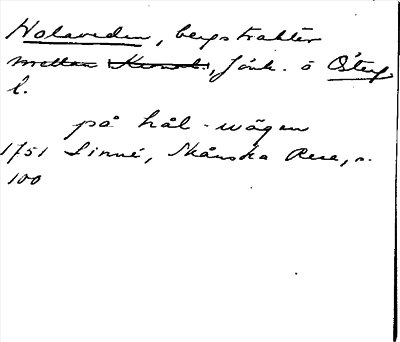 Holaveden, bergstrakter
mellan Kronob., Jönk. o Österg.
l.
på hål-wägen
1751 Linné, Skånska Resa, s.
100